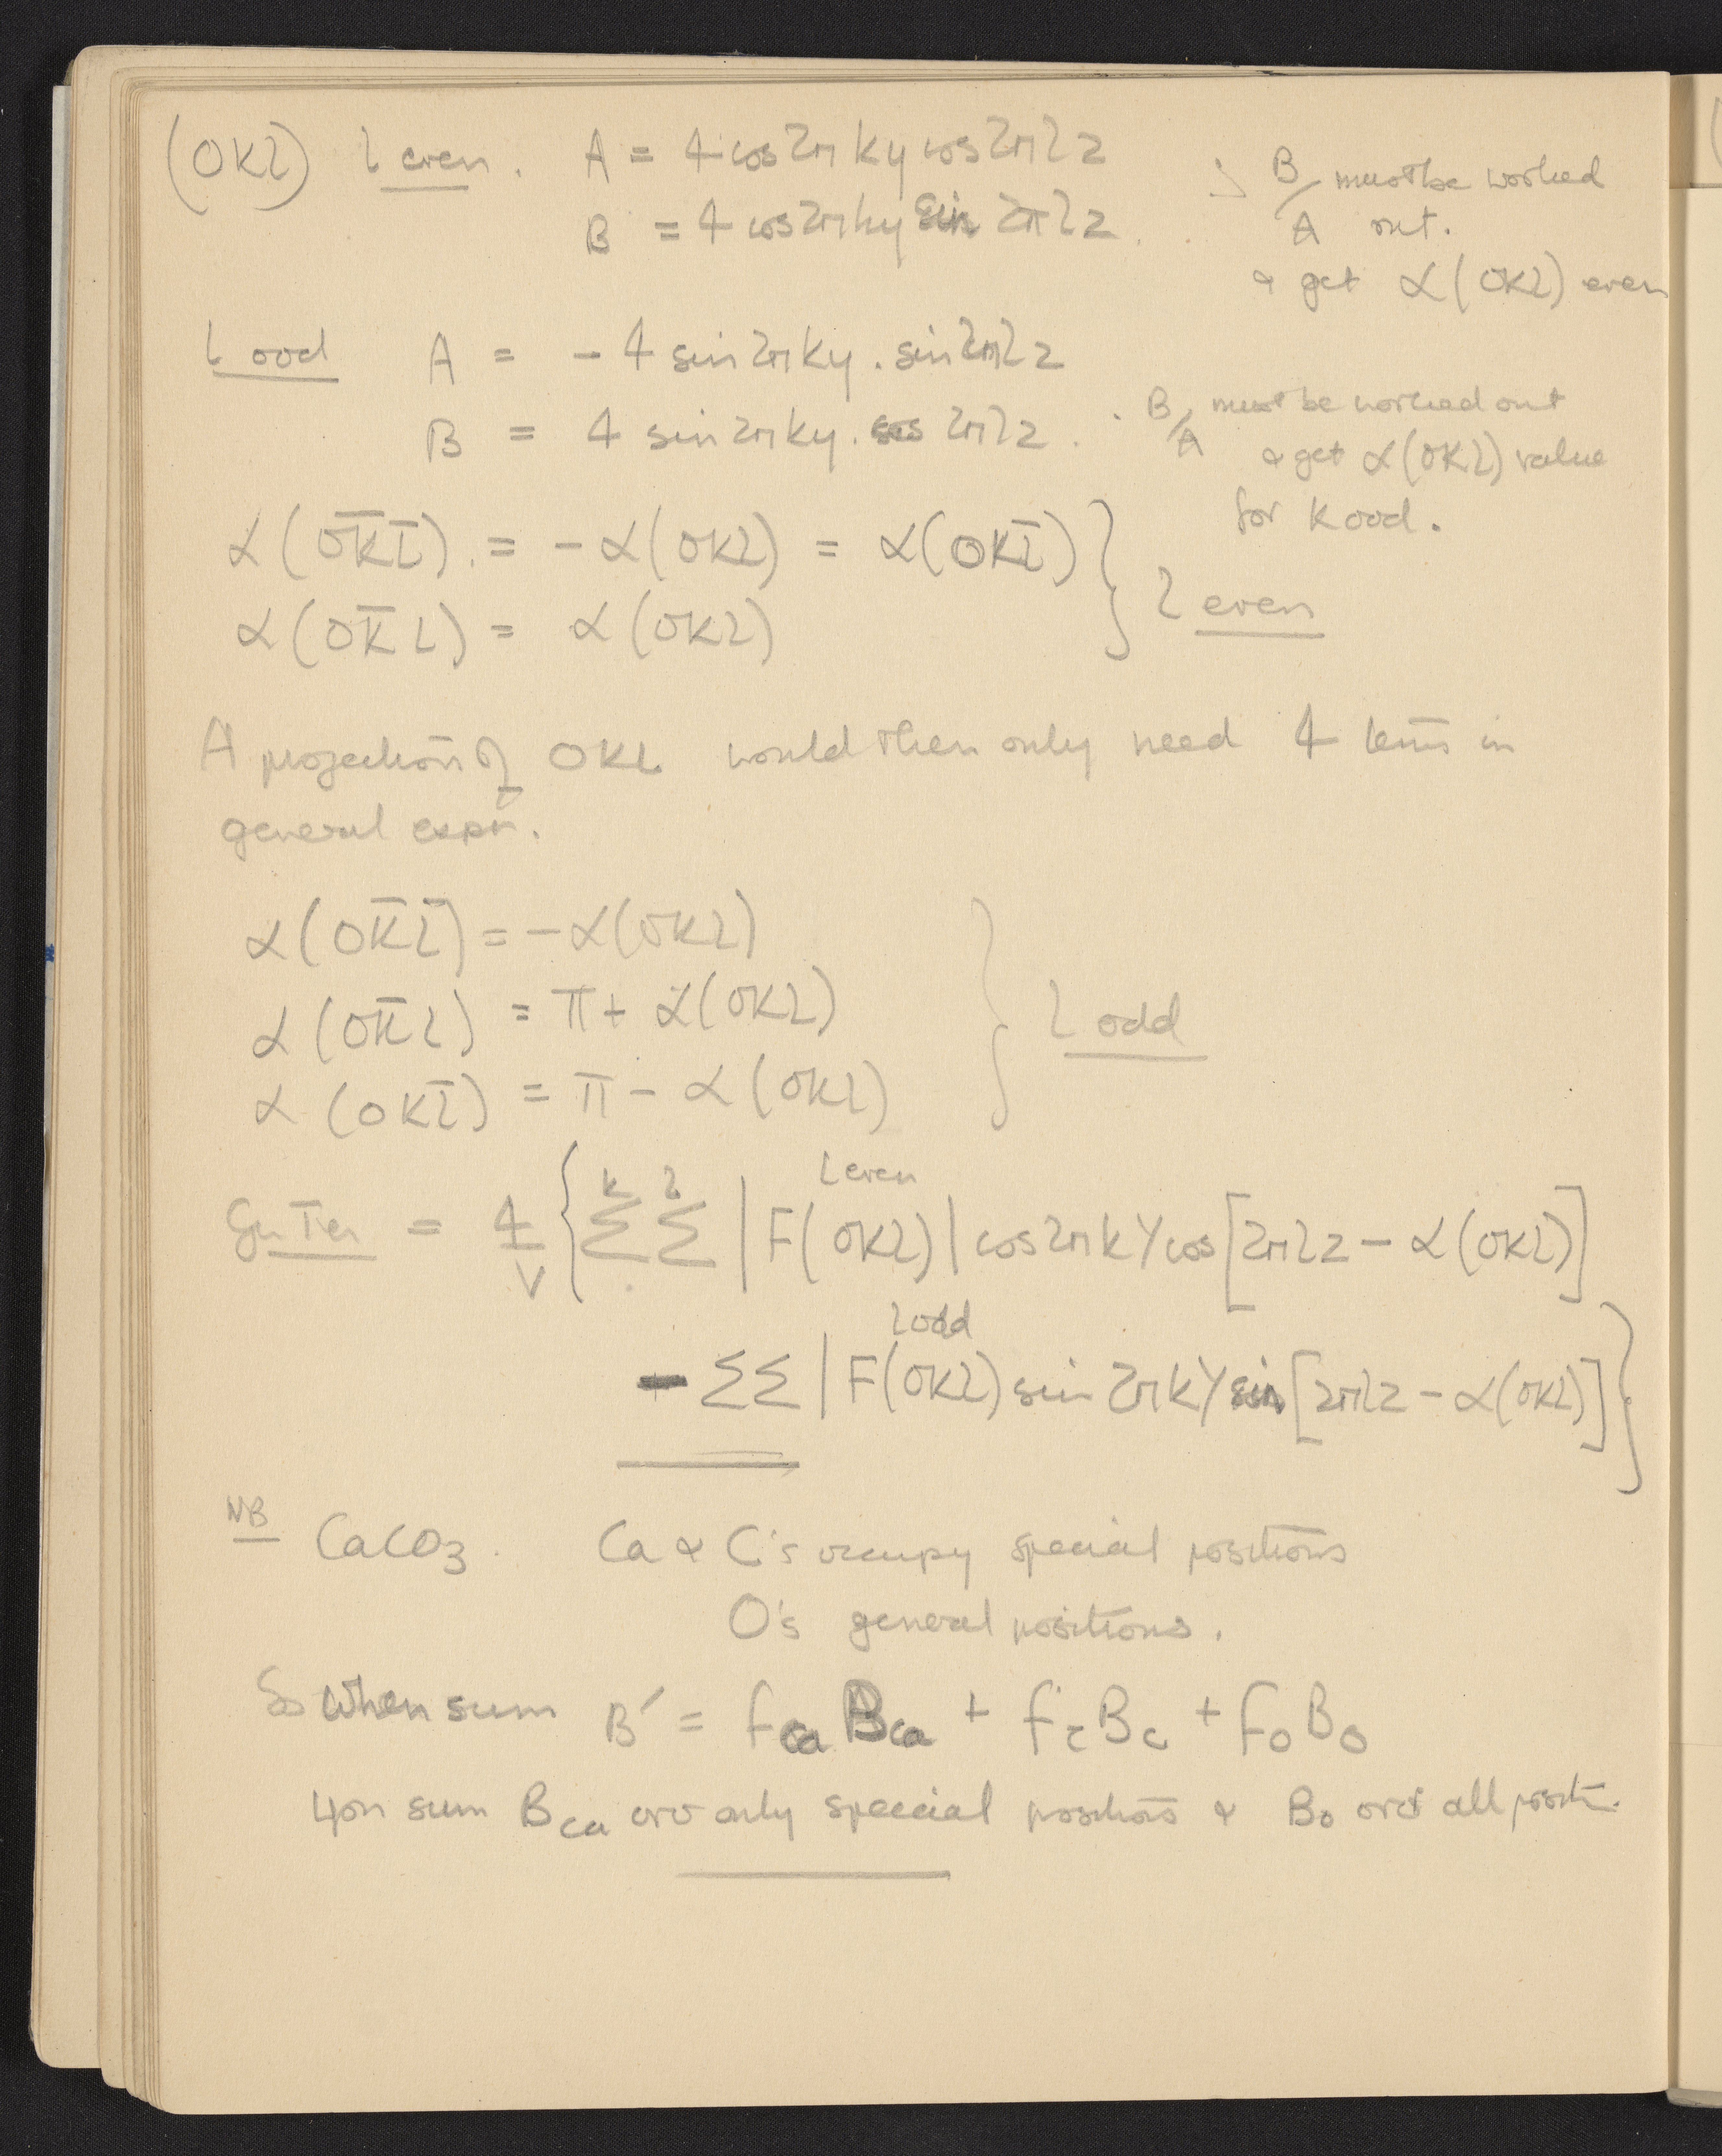 (0KL) l even. A = 4 cos 2π ky cos 2π l z
B = 4 cos 2π ky sin 2π l z . . B/A must be worked out.
& get α(0KL) even
l ood A = - 4 sin 2π ky . sin 2π l z
B = 4 sin 2π ky . cos 2π l z . . B/A must be worked out
& get α(0KL) value
for K ood.
α(0K̄L̄) . = - α(0KL) = α(0KL̄) }
α(0K̄L) = α(0KL) } l even
A projection of 0KL would then only need 4 terms in
general expn.
α(0K̄L̄) = -α(0KL)
α(0K̄L) = π + α(0KL) } l odd
α(0KL̄) = π - α(0KL)
l even
= 4/V { Σ^k Σ^l |F(0KL)| cos 2π k Y cos [2π l z - α(0KL)]
l odd
- ΣΣ |F(0KL) sin 2π k Y sin [2π l z - α(0KL)] }
NB CaCO3. Ca & C's occupy special positions
O's general positions.
So when sum B′ = fCa BCa + fc Bc + fo Bo
you sum BCa over only special positions & Bo over all positn.